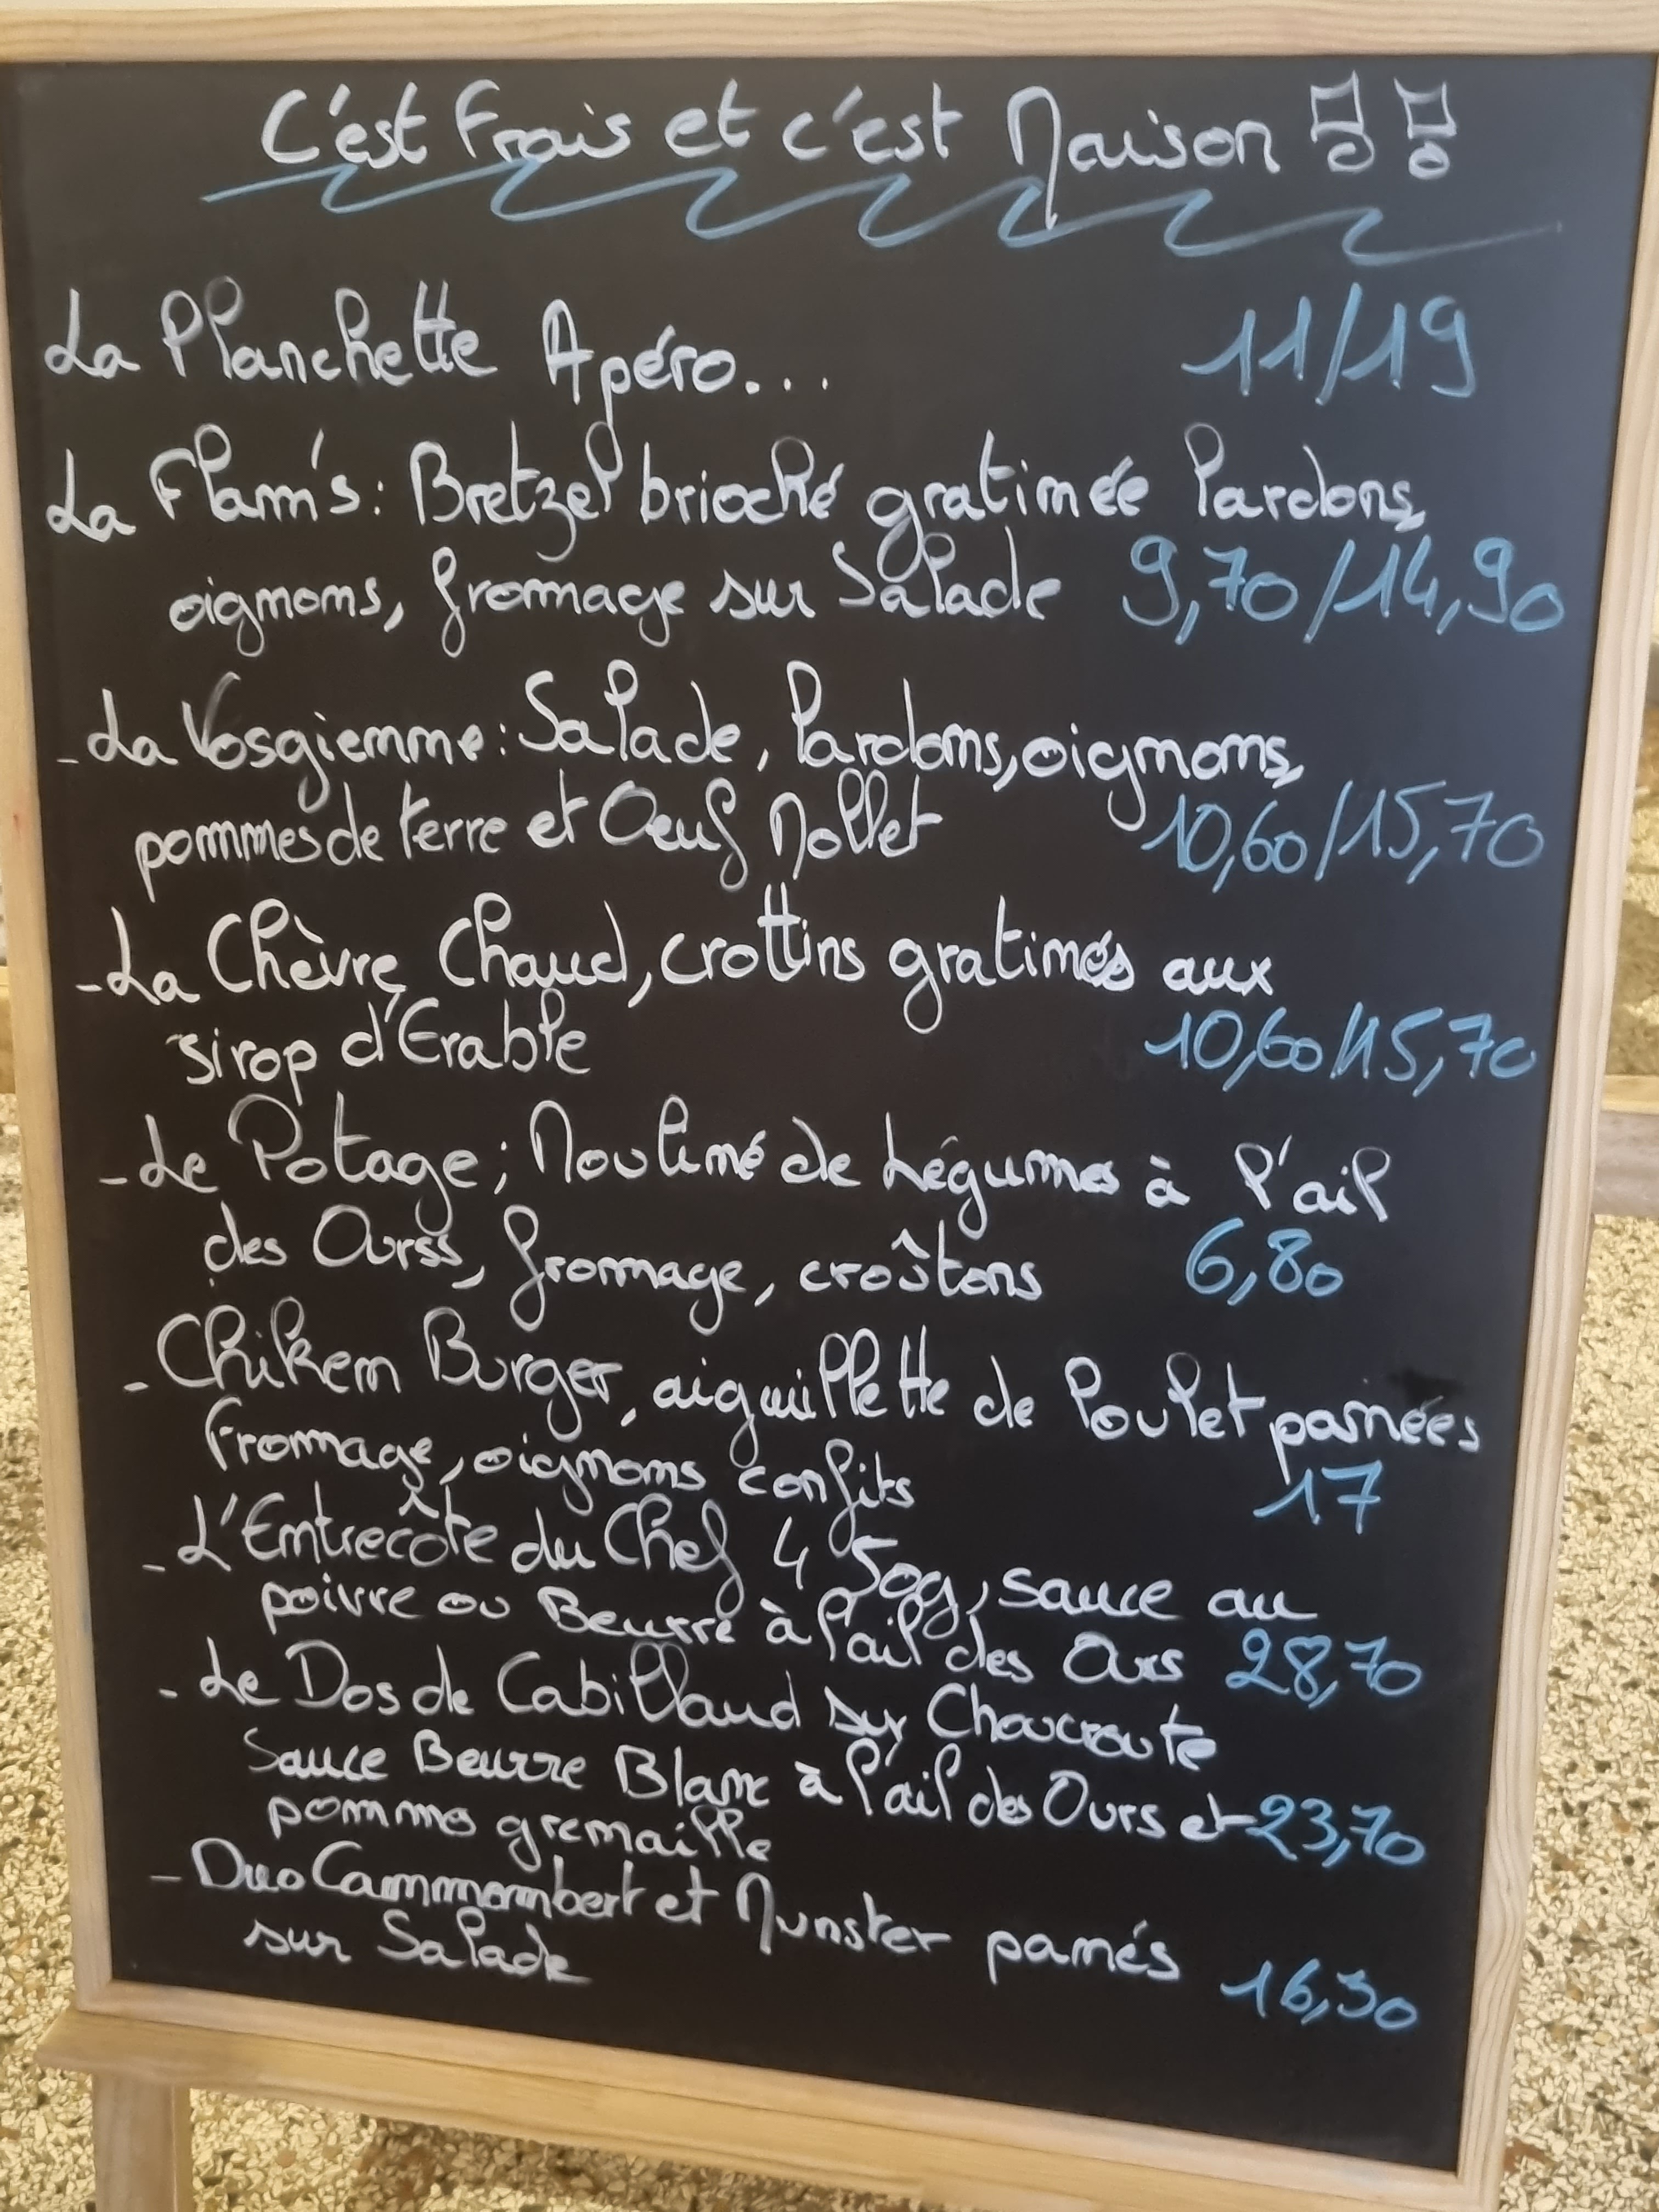 C'est Frais et c'est Maison !!
La Planchette Apéro... 11/19
La Flam's : Bretzel brioché gratinée lardons,
oignons, fromage sur Salade 9,70/14,90
- La Vosgienne : Salade, lardons, oignons,
pommes de terre et Oeuf Mollet 10,60/15,70
- La Chèvre Chaud, crottins gratinés aux
sirop d'Erable 10,60/15,70
- Le Potage ; Mouliné de Légumes à l'ail
des Ourss, fromage, croûtons 6,80
- Chiken Burger, aiguillette de Poulet panées
fromage, oignons confits 17
- L'Entrecôte du Chef 450g, sauce au
poivre ou Beurre à l'ail des Ours 28,70
- Le Dos de Cabillaud sur Choucroute
Sauce Beurre Blanc à l'ail des Ours et 23,70
pommes grenaille
- Duo Cammembert et Munster panés
sur Salade 16,30